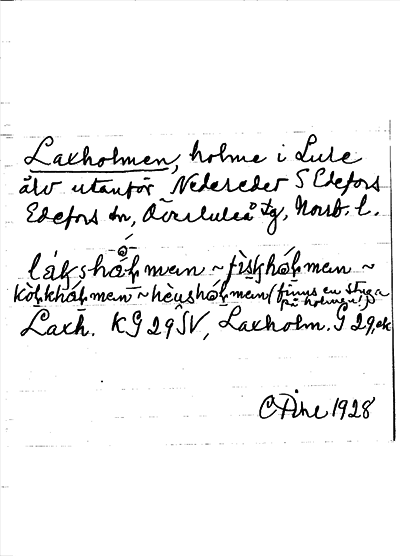 Laxholmen, holme i Lule
älv utanför Nedereder S Edefors
Edefors sn, Överluleå tg, Norrb. l.
lákshólmen ~ fìskhólmen ~
kòlkhólmen ~ hèushólmen (finns en stuga
på holmen!)
Laxh. KG 29 SV, Laxholm. G 29, ek
C Pihl 1928